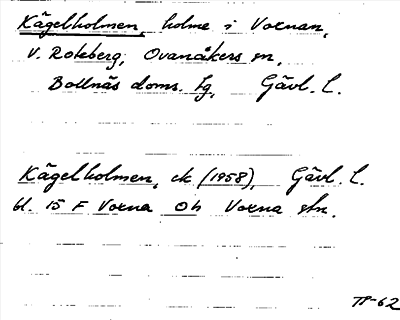 Kägelholmen, holme i Voxnan,
v. Roteberg, Ovanåkers sn,
Bollnäs doms. tg, Gävl. L.
Kägelholmen, ek (1958), Gävl. L.
bl. 15 F Voxna Oh Voxna stn.
TP-62